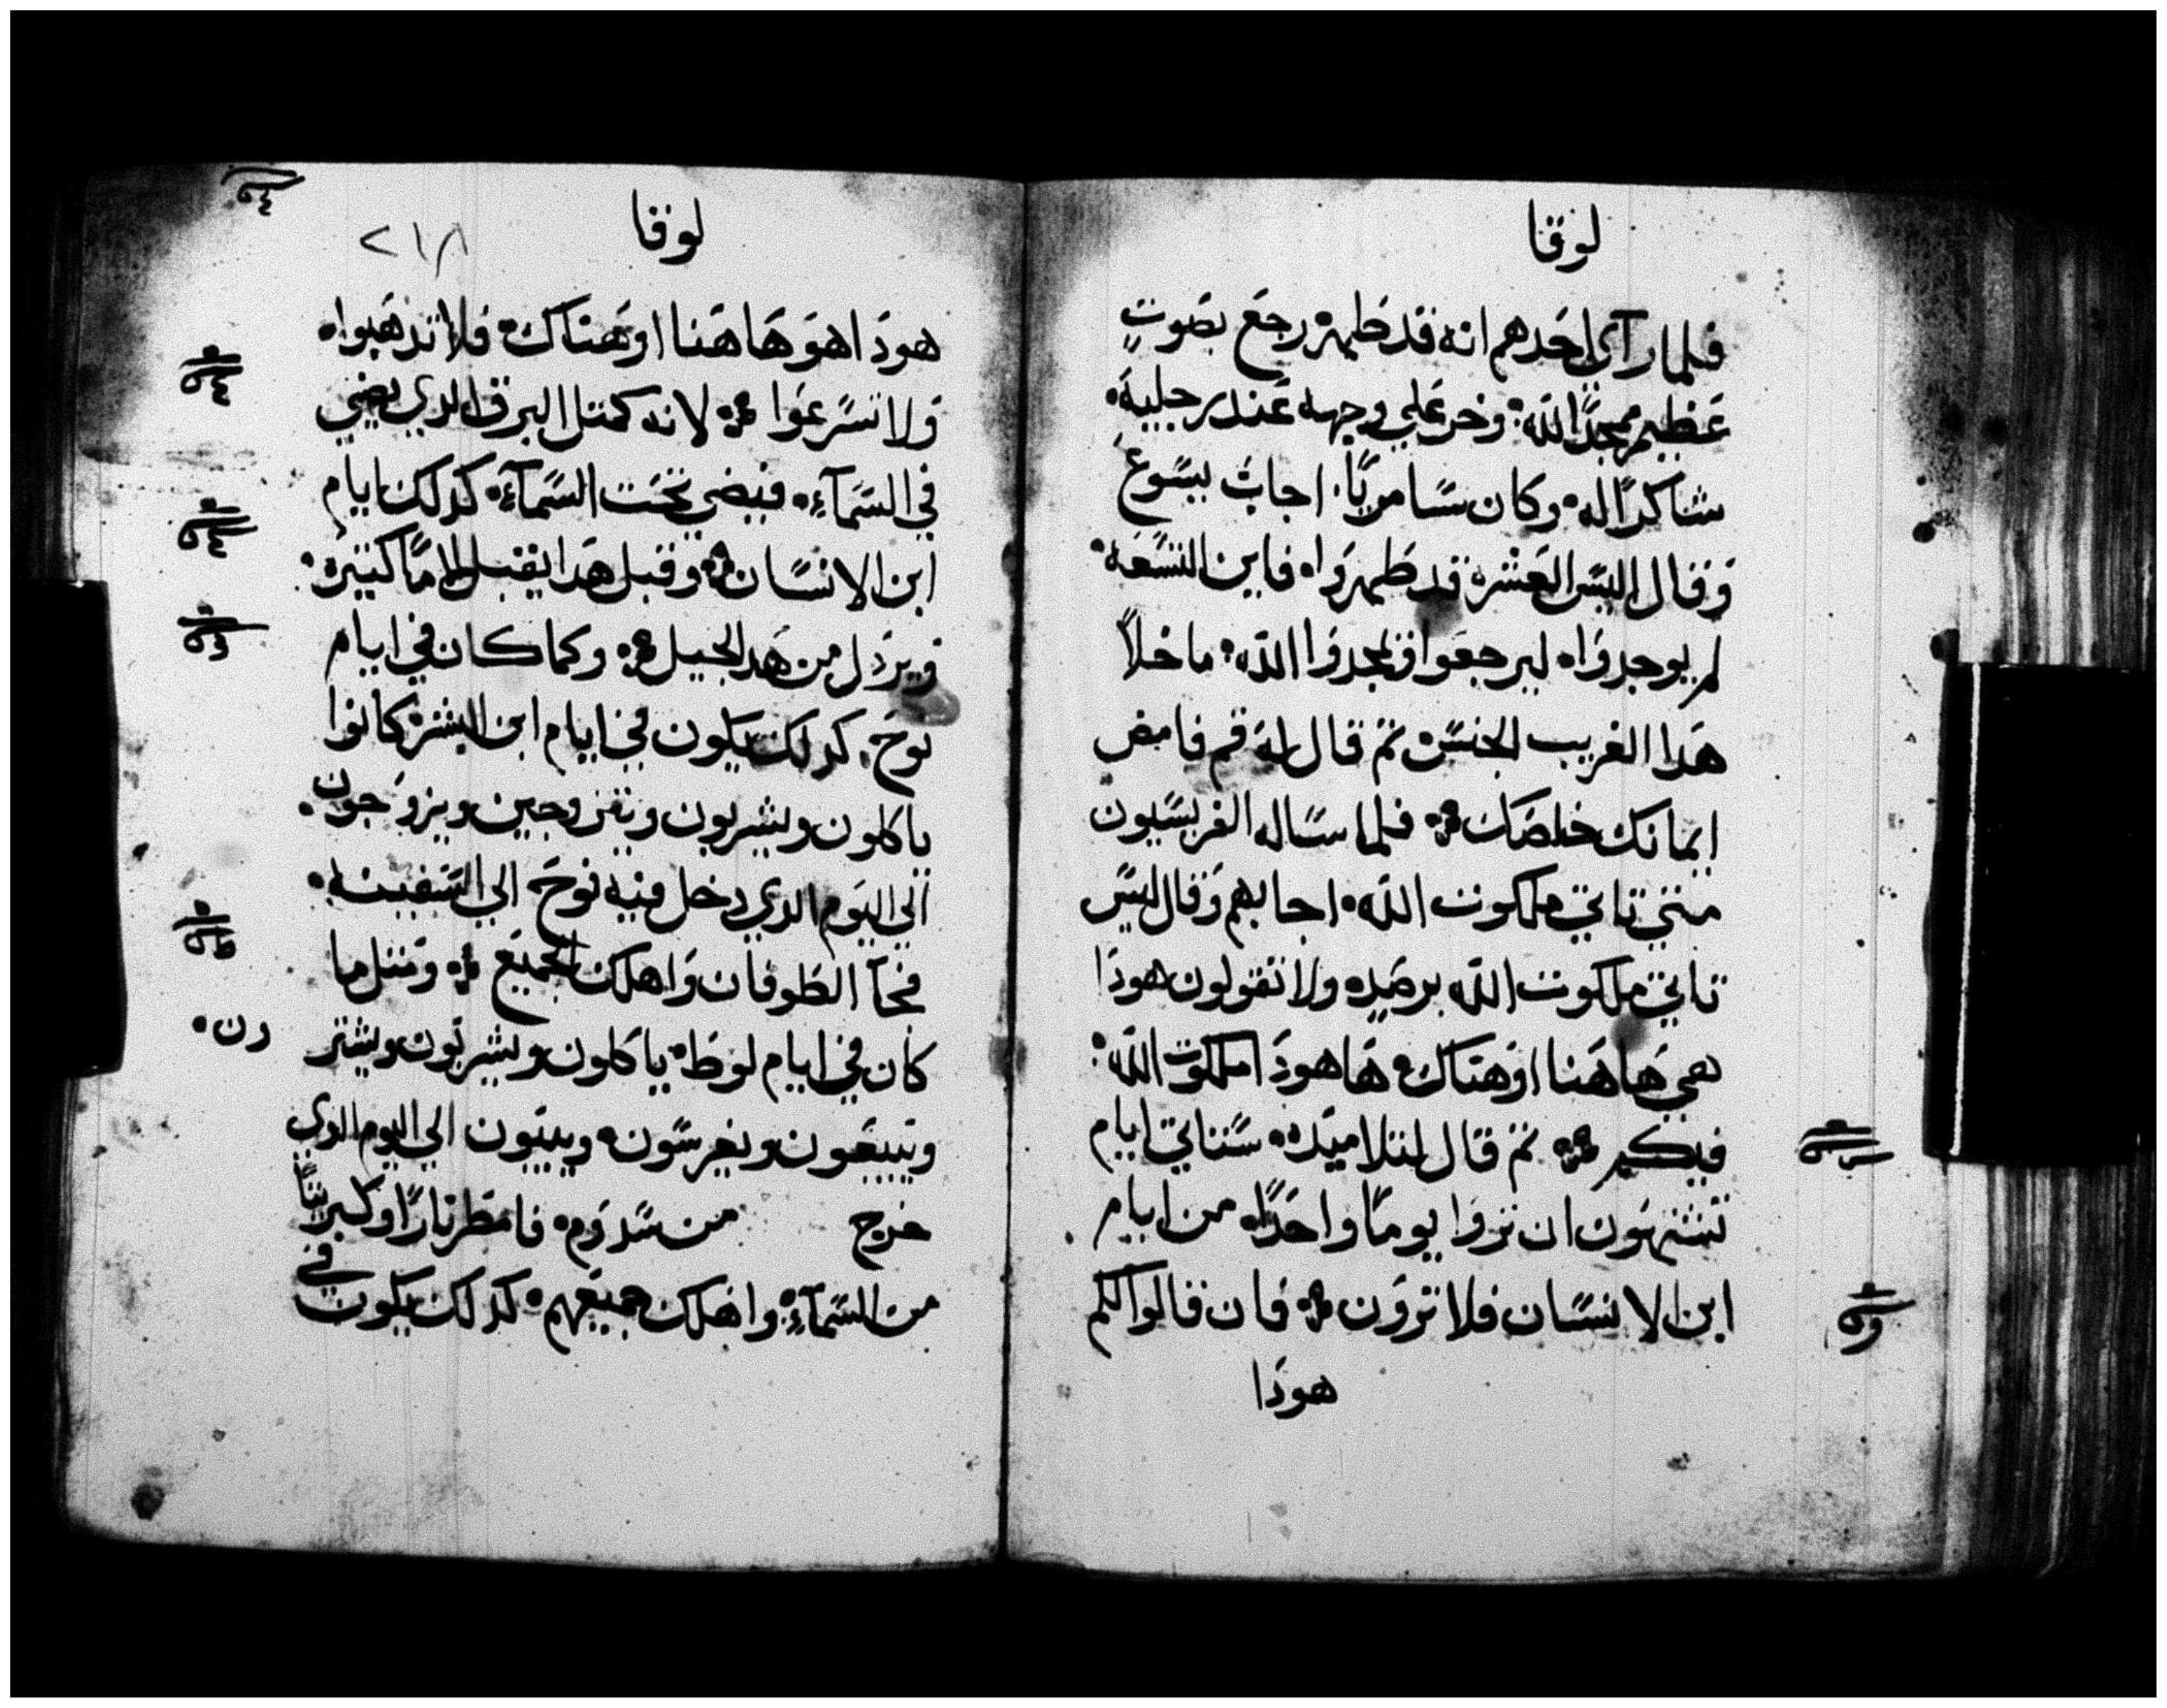 لوقا
فلما رآي احدهم انه قد طهر رجع بصوتٍ
عظيم ممجدًا الله وخر علي وجهه عند رجليه
شاكرًا له وكان سامريًا اجاب يسوع
وقال اليس العشره قد طهروا فاين التسعه
لم يوجدوا ليرجعوا ويمجدوا الله ما خلاً
هدا الغريب الجنس ثم قال له قم فامض
ايمانك خلصك فلما ساله الفريسيون
متي تاتي ملكوت الله اجابهم وقال ليس
تاتي ملكوت الله برصد ولا تقولون هودا
هي هاهنا او هناك ها هودا ملكوت الله
فيكم ثم قال لتلاميده ستاتي ايام
تشتهون ان تروا يومًا واحدًا من ايام
ابن الانسان فلا ترون فان قالوا لكم
هودا
لوقا
٢١٨
هودا هو هاهنا او هناك فلا تدهبوا
ولا تسرعوا لانه كمثل البرق الدي يضي
في السمآء فيضي تحت السمآء كدلك ايام
ابن الانسان وقبل هدا يقبل الامًا كثيره
ويردل من هدا الجيل وكما كان في ايام
نوح كدلك يكون في ايام ابن البشر كانوا
ياكلون ويشربون ويتزوجين ويزوجون
الي اليوم الدي دخل فيه نوح الي السفينه
فجآ الطوفان واهلك الجميع ومثل ما
كان في ايام لوط ياكلون ويشربون ويشتر
ون
ويبيعون ويغرسون ويبنون الي اليوم الدي
خرج من سدوم فامطر نارًا وكبريتًا
من السمآء واهلك جميعهم كدلك يكون في